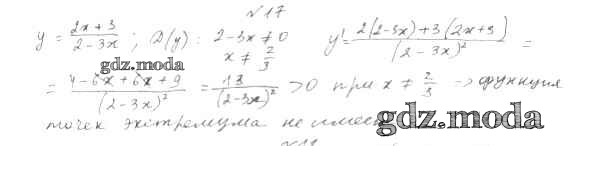 №17
y = (2x+3)/(2-3x) ; D(y): 2-3x ≠ 0 x ≠ 2/3 y' = (2(2-3x)+3(2x+3))/(2-3x)² =
gdz.moda
= (4-6x+6x+9)/(2-3x)² = 13/(2-3x)² > 0 при x ≠ 2/3 → функция
точек экстремума не имеет
gdz.moda